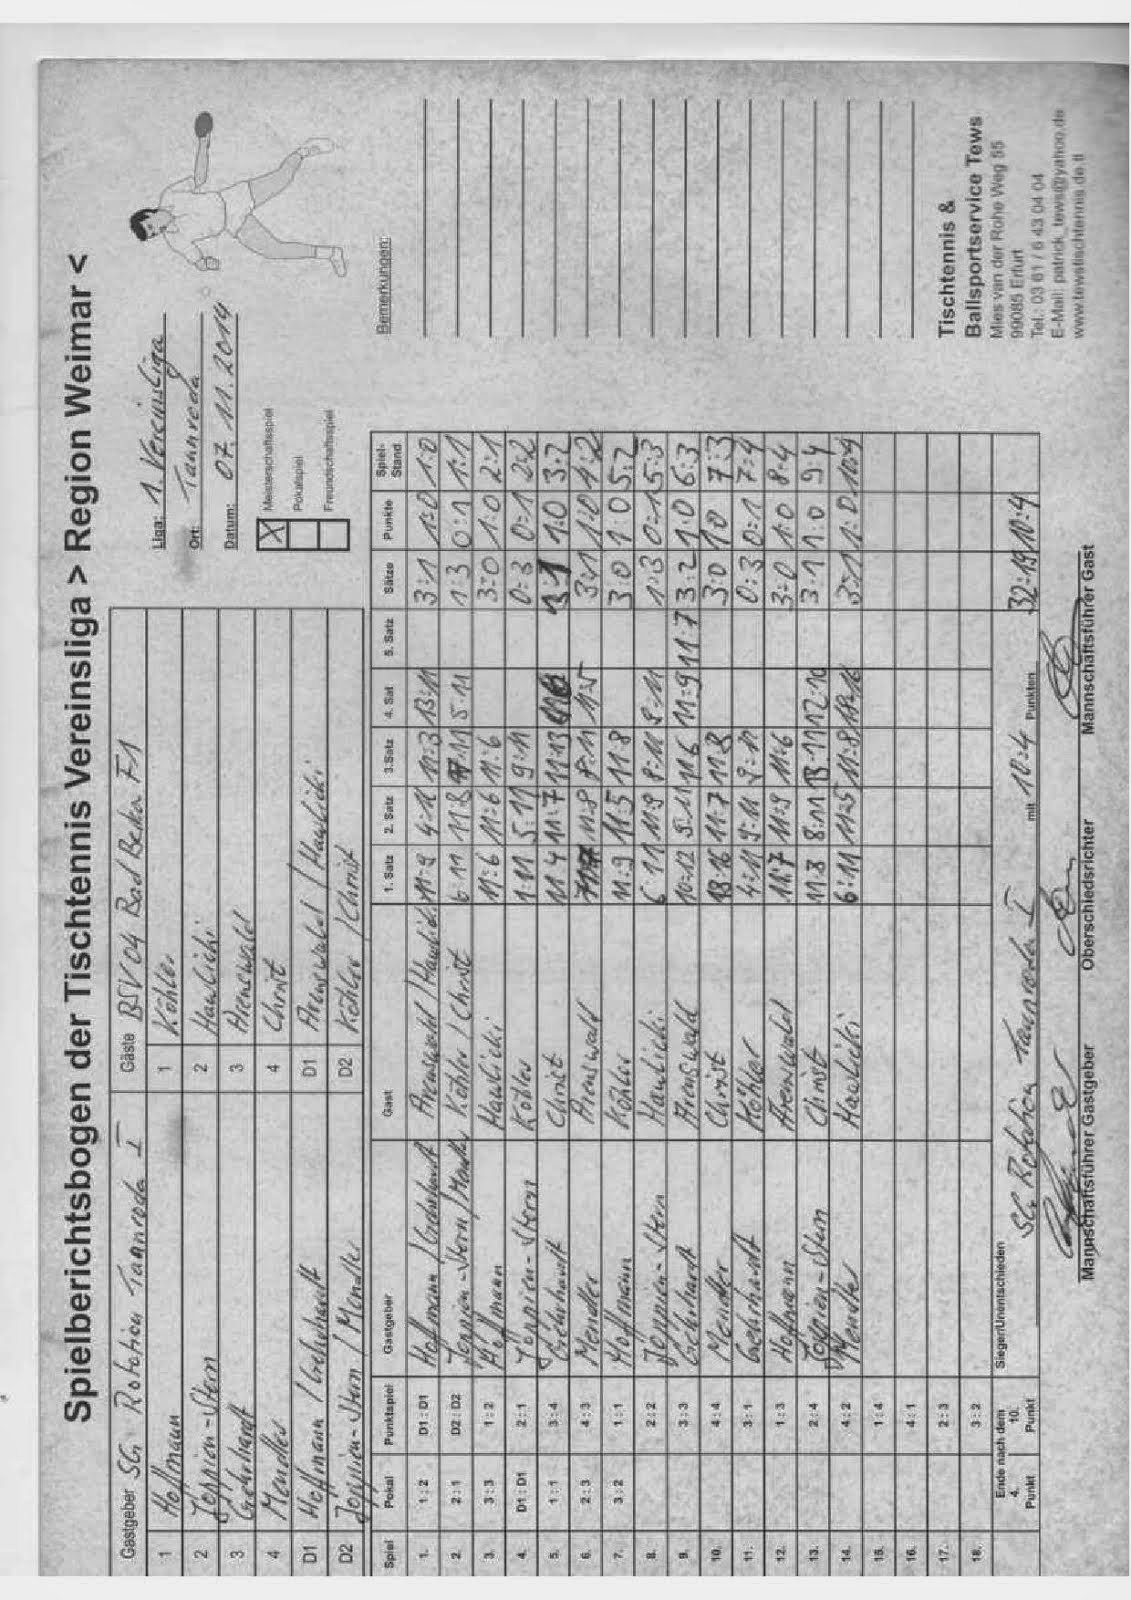 Spielberichtsbogen der Tischtennis Vereinsliga > Region Weimar <
Gastgeber SG Rotation Tannroda I Gäste BSV 04 Bad Berka F1
1 Hoffmann 1 Köhler
2 Joppien-Stern 2 Hawlicki
3 Gerhardt 3 Arenswald
4 Mendler 4 Christ
D1 Hoffmann / Gerhardt D1 Arenswald / Hawlicki
D2 Joppien-Stern / Mendler D2 Köhler / Christ
Liga: 1. Vereinsliga
Ort: Tannroda
Datum: 07.11.2014
X Meisterschaftsspiel
Pokalspiel
Freundschaftsspiel
Spiel Pokal Punktspiel Gastgeber Gast 1. Satz 2. Satz 3.Satz 4. Sat 5. Satz Sätze Punkte Spiel-Stand
1. 1 : 2 D1 : D1 Hoffmann / Gerhardt Arenswald / Hawlicki 11:9 4:11 11:3 13:11 3:1 1:0 1:0
2. 2 : 1 D2 : D2 Joppien-Stern / Mendler Köhler / Christ 6:11 11:8 :11 5:11 1:3 0:1 1:1
3. 3 : 3 1 : 2 Hoffmann Hawlicki 11:6 11:6 11:6 3:0 1:0 2:1
4. D1 : D1 2 : 1 Joppien-Stern Köhler 1:11 5:11 9:11 0:3 0:1 2:2
5. 1 : 1 3 : 4 Gerhardt Christ 11 4 11:7 11:13 3:1 1:0 3:2
6. 2 : 3 4 : 3 Mendler Arenswald 11:8 8:11 11:5 3:1 1:0 4:2
7. 3 : 2 1 : 1 Hoffmann Köhler 11:9 11:5 11 8 3:0 1:0 5:2
8. 2 : 2 Joppien-Stern Hawlicki 6 11 11:9 8:11 9:11 1:3 0:1 5:3
9. 3 : 3 Gerhardt Arenswald 10:12 9:11 11 6 11:9 11:7 3:2 1:0 6:3
10. 4 : 4 Mendler Christ 18:16 11:7 11:8 3:0 1 0 7:3
11. 3 : 1 Gerhardt Köhler 4:11 9:11 9:11 0:3 0:1 7:4
12. 1 : 3 Hoffmann Arenswald 11:7 11:9 11:6 3:0 1:0 8:4
13. 2 : 4 Joppien-Stern Christ 11 8 8:11 13:11 12:10 3:1 1:0 9 4
14. 4 : 2 Mendler Hawlicki 6:11 11:5 11:8 18:16 3:1 1:0 10:4
15. 1 : 4
16. 4 : 1
17. 2 : 3
18. 3 : 2
Ende nach dem
4. Punkt 10. Punkt
Sieger/Unentschieden SG Rotation Tannroda I mit 10:4 Punkten 32:19 10:4
Mannschaftsführer Gastgeber Oberschiedsrichter Mannschaftsführer Gast
Bemerkungen:
Tischtennis &
Ballsportservice Tews
Mies van der Rohe Weg 55
99085 Erfurt
Tel.: 03 61 / 6 43 04 04
E-Mail: patrick_tews@yahoo.de
www.tewstischtennis.de.tl